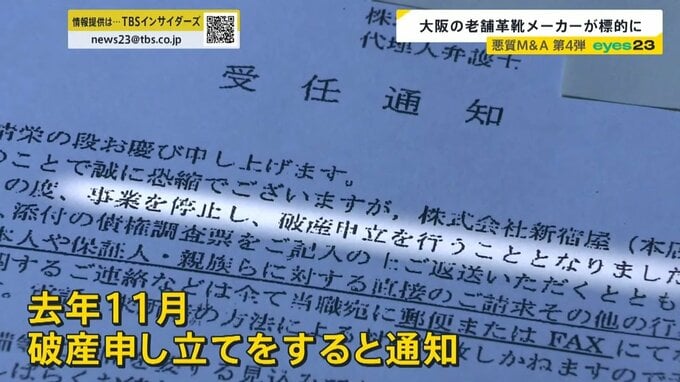 情報提供は…TBSインサイダーズ
news23@tbs.co.jp
大阪の老舗革靴メーカーが標的に
悪質M&A 第4弾 eyes23
株
代理人弁護士
受任通知
清栄の段お慶び申し上げます。
のことで誠に恐縮でございますが，株式会社新宿屋（本店
の度、事業を停止し、破産申立を行うこととなりました
、添付の債権調査票をご記入の上ご返送いただくととも
本人や保証人・親族らに対する直接のご請求その他の行
関するご連絡などは全て当職宛に郵便またはFAXにてな
去年11月
破産申し立てをすると通知